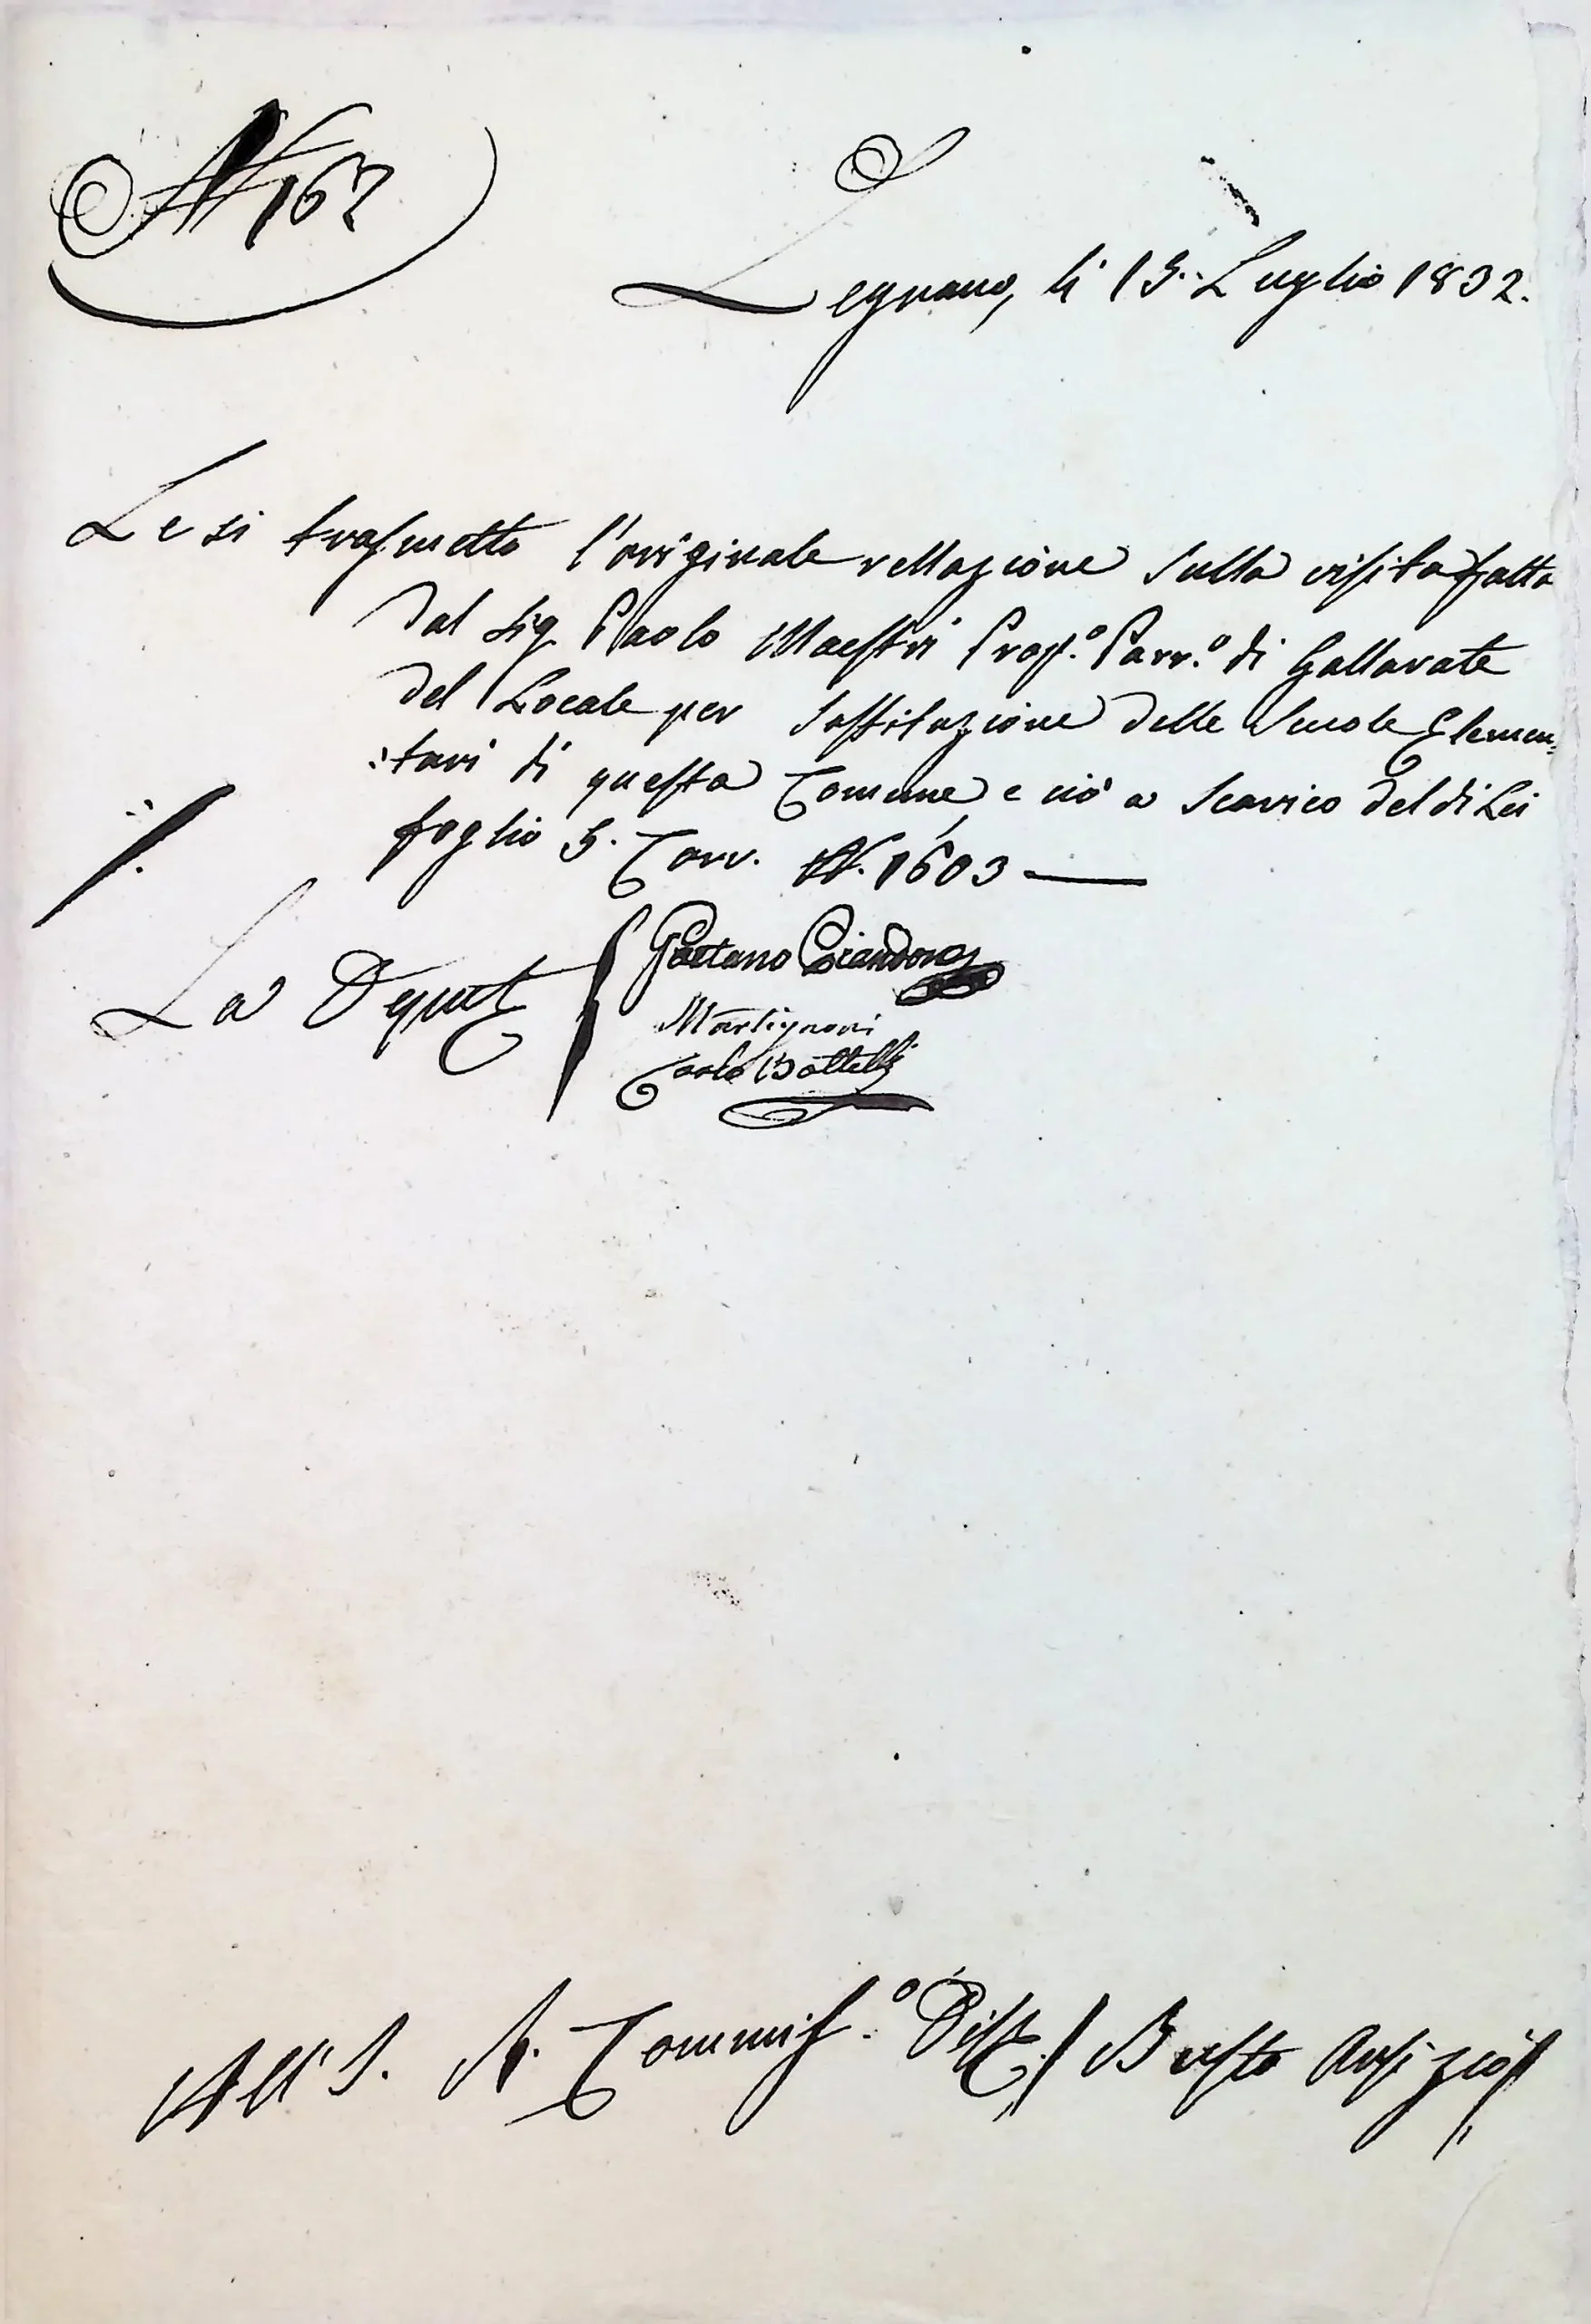 N 167
Legnano, li 15. Luglio 1832.
Le si trasmette l'originale rellazione sulla visita fatta
dal Sig. Paolo Maestri Prop.º Parr.º di Gallarate
del Locale per
delle Scuole Elemen-
:tari di questa Comune, e ciò a scarico del di Lei
foglio 5. Corr. N. 1603 —
La Deput
Gaetano
Martignoni
Carlo Bottelli
All' I. R. Commiss.º Dist. / Busto Arsizio /